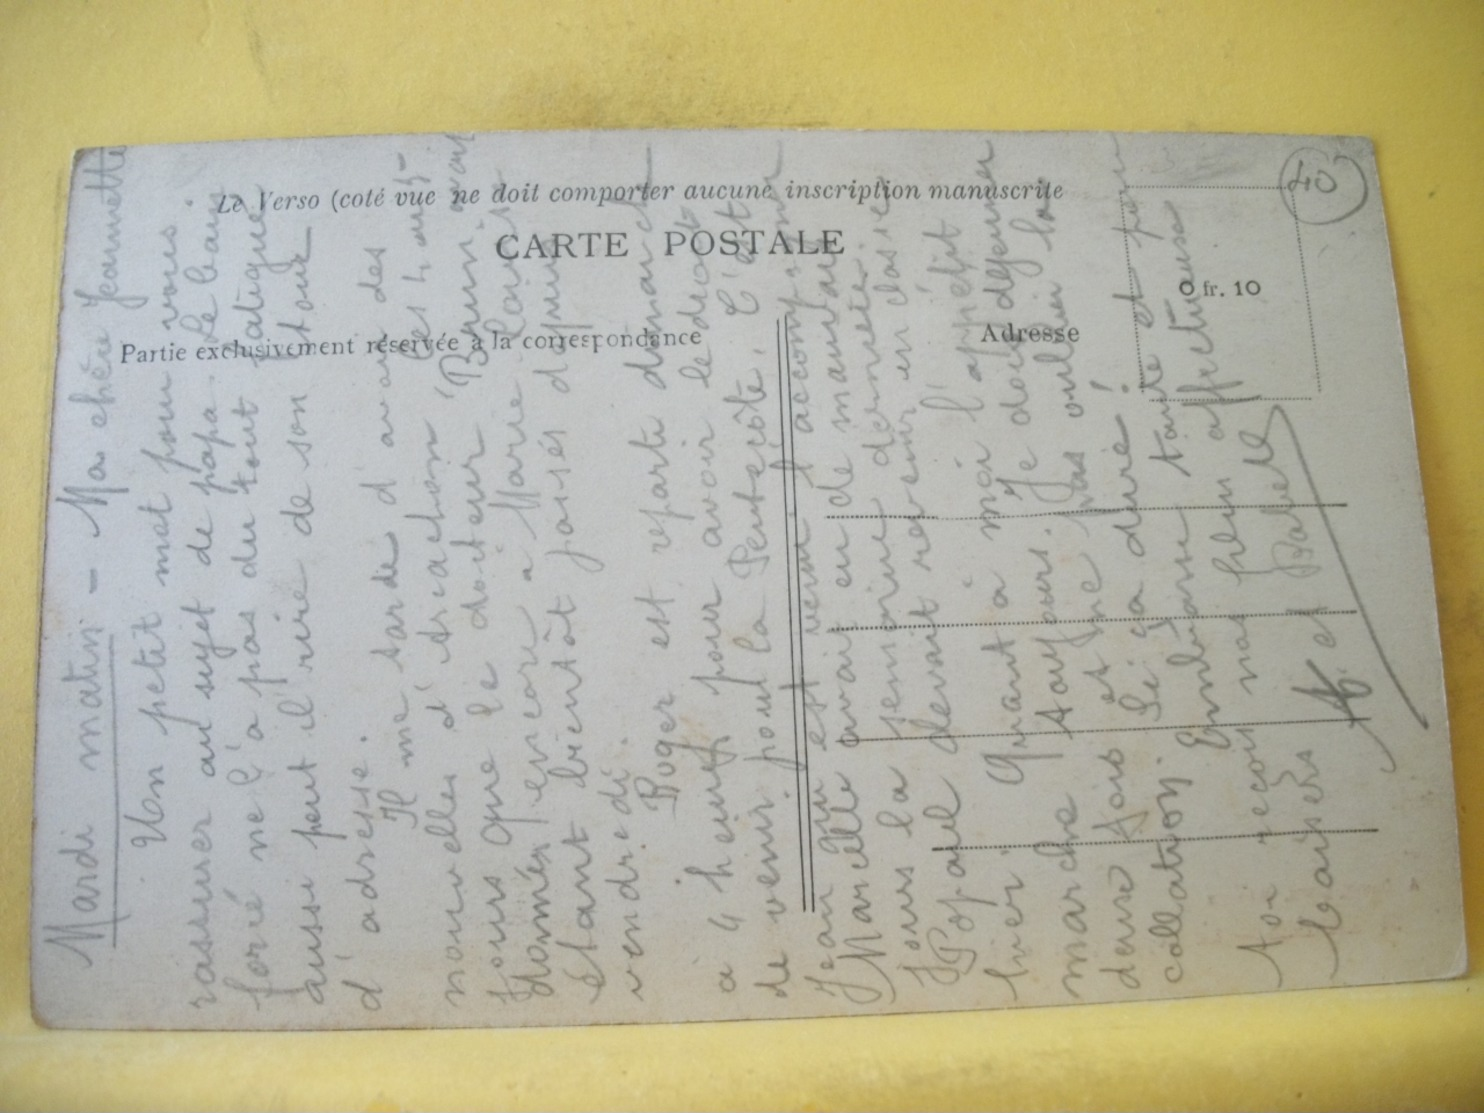 Le Verso (coté vue ne doit comporter aucune inscription manuscrite
CARTE POSTALE
Partie exclusivement réservée à la correspondance
Adresse
0 fr. 10
40
Mardi matin - Ma chère Jeannette
Un petit mot pour vous
rassurer au sujet de papa. Le bain
forcé ne l'a pas du tout fatigué
aussi peut il rire de son
d'adresse.
Il me tarde d'avoir des
nouvelles d'Arcachon, les 4
jours que le docteur
donnés encore a Marie Louise
étant bientôt passés depuis
vendredi.
Roger est reparti dimanche
a 4 heures pour avoir le droit
de venir pour la Pentecôte. C'est
Jean qui est venu
Marcelle avait eu de mauvais
jours la semaine dernière.
Popaul devait revenir en classe
hier. Quant à moi l'appétit
marche toujours. Je dois déjeuner
deux fois et ne pas oublier la
collation. Si ça dure!
Embrasse tante et
toi reçois mon bien affectueux
baisers